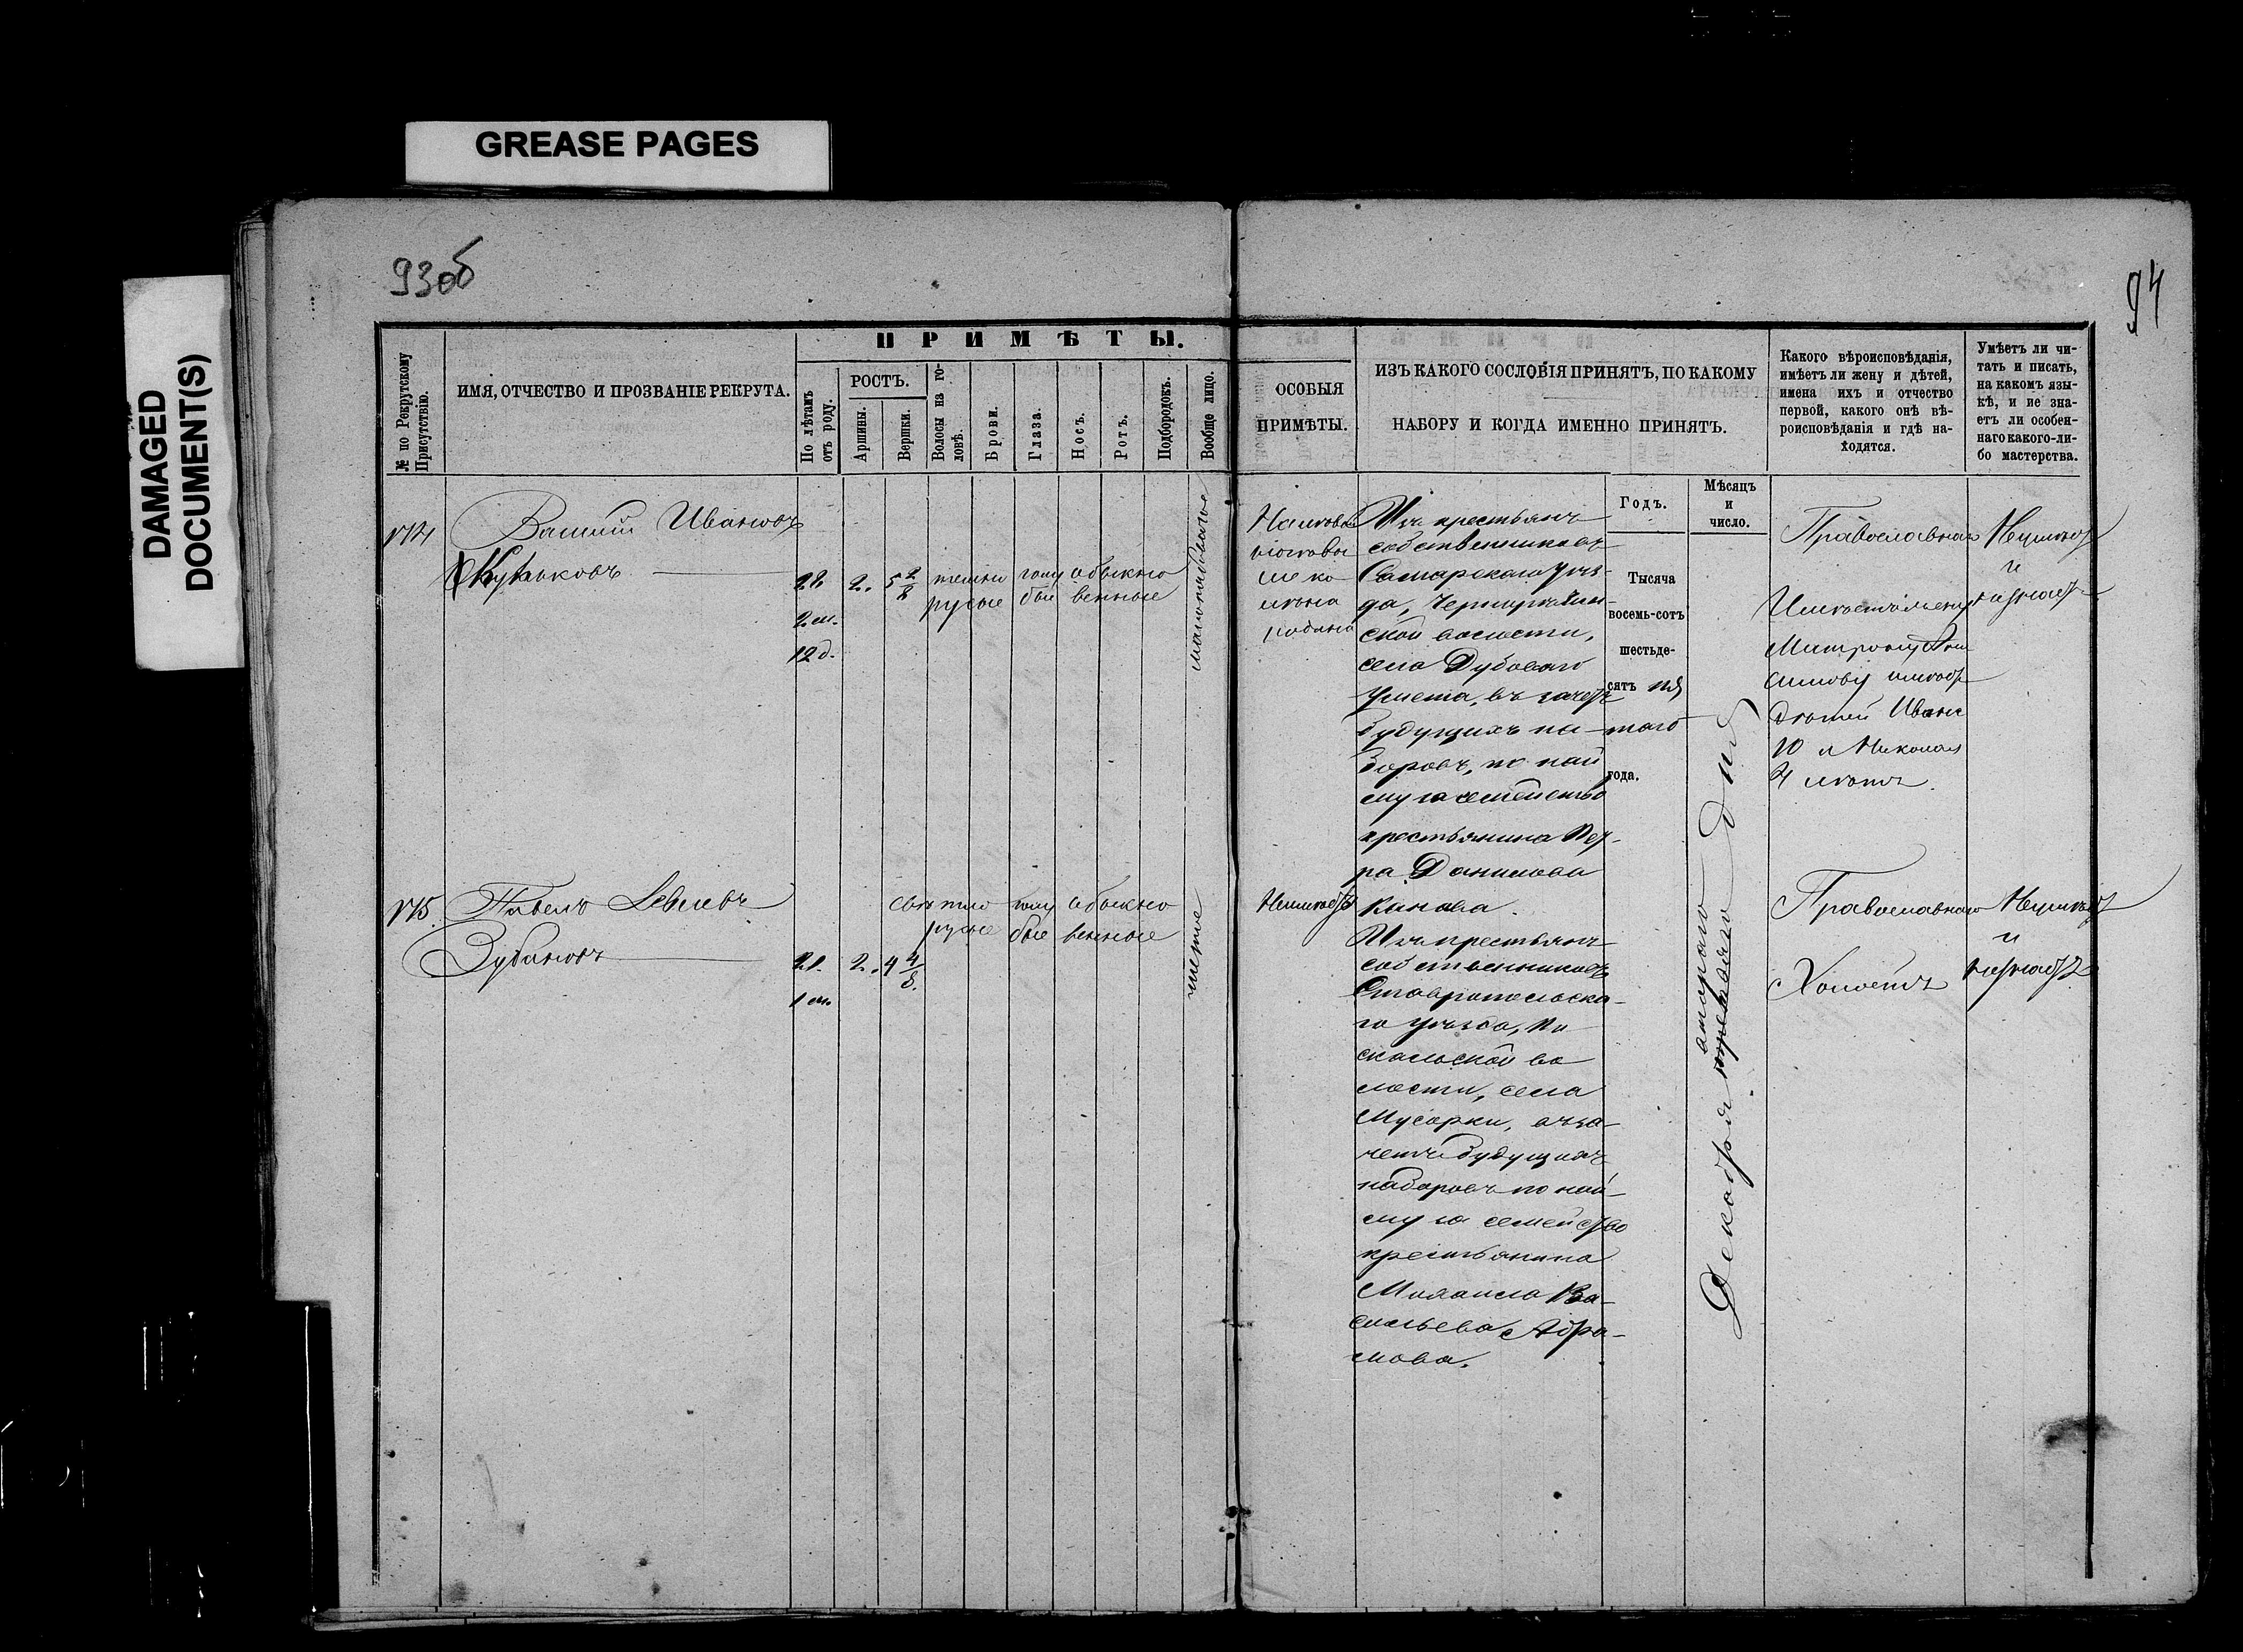 GREASE PAGES
DAMAGED
DOCUMENT(S)
93об
94
ПРИМѢТЫ.
№ по Рекрутскому
Присутствію.
ИМЯ, ОТЧЕСТВО И ПРОЗВАНІЕ РЕКРУТА.
По лѣтамъ
отъ роду.
РОСТЪ.
Аршины.
Вершки.
Волосы на го-
ловѣ.
Брови.
Глаза.
Носъ.
Ротъ.
Подбородокъ.
Вообще лицо.
ОСОБЫЯ
ПРИМѢТЫ.
ИЗЪ КАКОГО СОСЛОВІЯ ПРИНЯТЪ, ПО КАКОМУ
НАБОРУ И КОГДА ИМЕННО ПРИНЯТЪ.
Какого вѣроисповѣданія,
имѣетъ ли жену и дѣтей,
имена ихъ и отчество
первой, какого онѣ вѣ-
роисповѣданія и гдѣ на-
ходятся.
Умѣетъ ли чи-
тать и писать,
на какомъ язы-
кѣ, и не зна-
етъ ли особен-
наго какого-ли-
бо мастерства.
Годъ.
Мѣсяцъ
и
число.
Тысяча
восемь-сотъ
шестьде-
сятъ пя
таго
года.
Декабря втораго дня
Ивановъ
2.
2 м.
12 д.
2. 5 2/8
темно
русые
голу
бые
обыкно
венные
Изъ крестьянъ
собственниковъ
Самарскаго уѣз-
да,
ской волости,
села Дубоваго
Умета, въ зачетъ
будущихъ на-
боровъ, по най
му за семейство
крестьянина Пет-
ра Данилова
Православнаго
Имѣетъ жену
дѣтей Ивана
10 и Николая
4 лѣтъ.
Неумѣетъ
и
Павелъ
Зубановъ
21.
1 м.
2. 4 4/8.
свѣтло
русые
голу
бые
обыкно
венные
чистое
Неимѣетъ
Изъ крестьянъ
собственниковъ
Ставропольска-
го уѣзда, Пи
скальской во
лости, села
Мусорки, въ за-
четъ будущихъ
наборовъ по най-
му за семейство
крестьянина
Михаила Ва-
сильева Абра-
мова.
Православнаго
Холостъ
Неумѣетъ
и